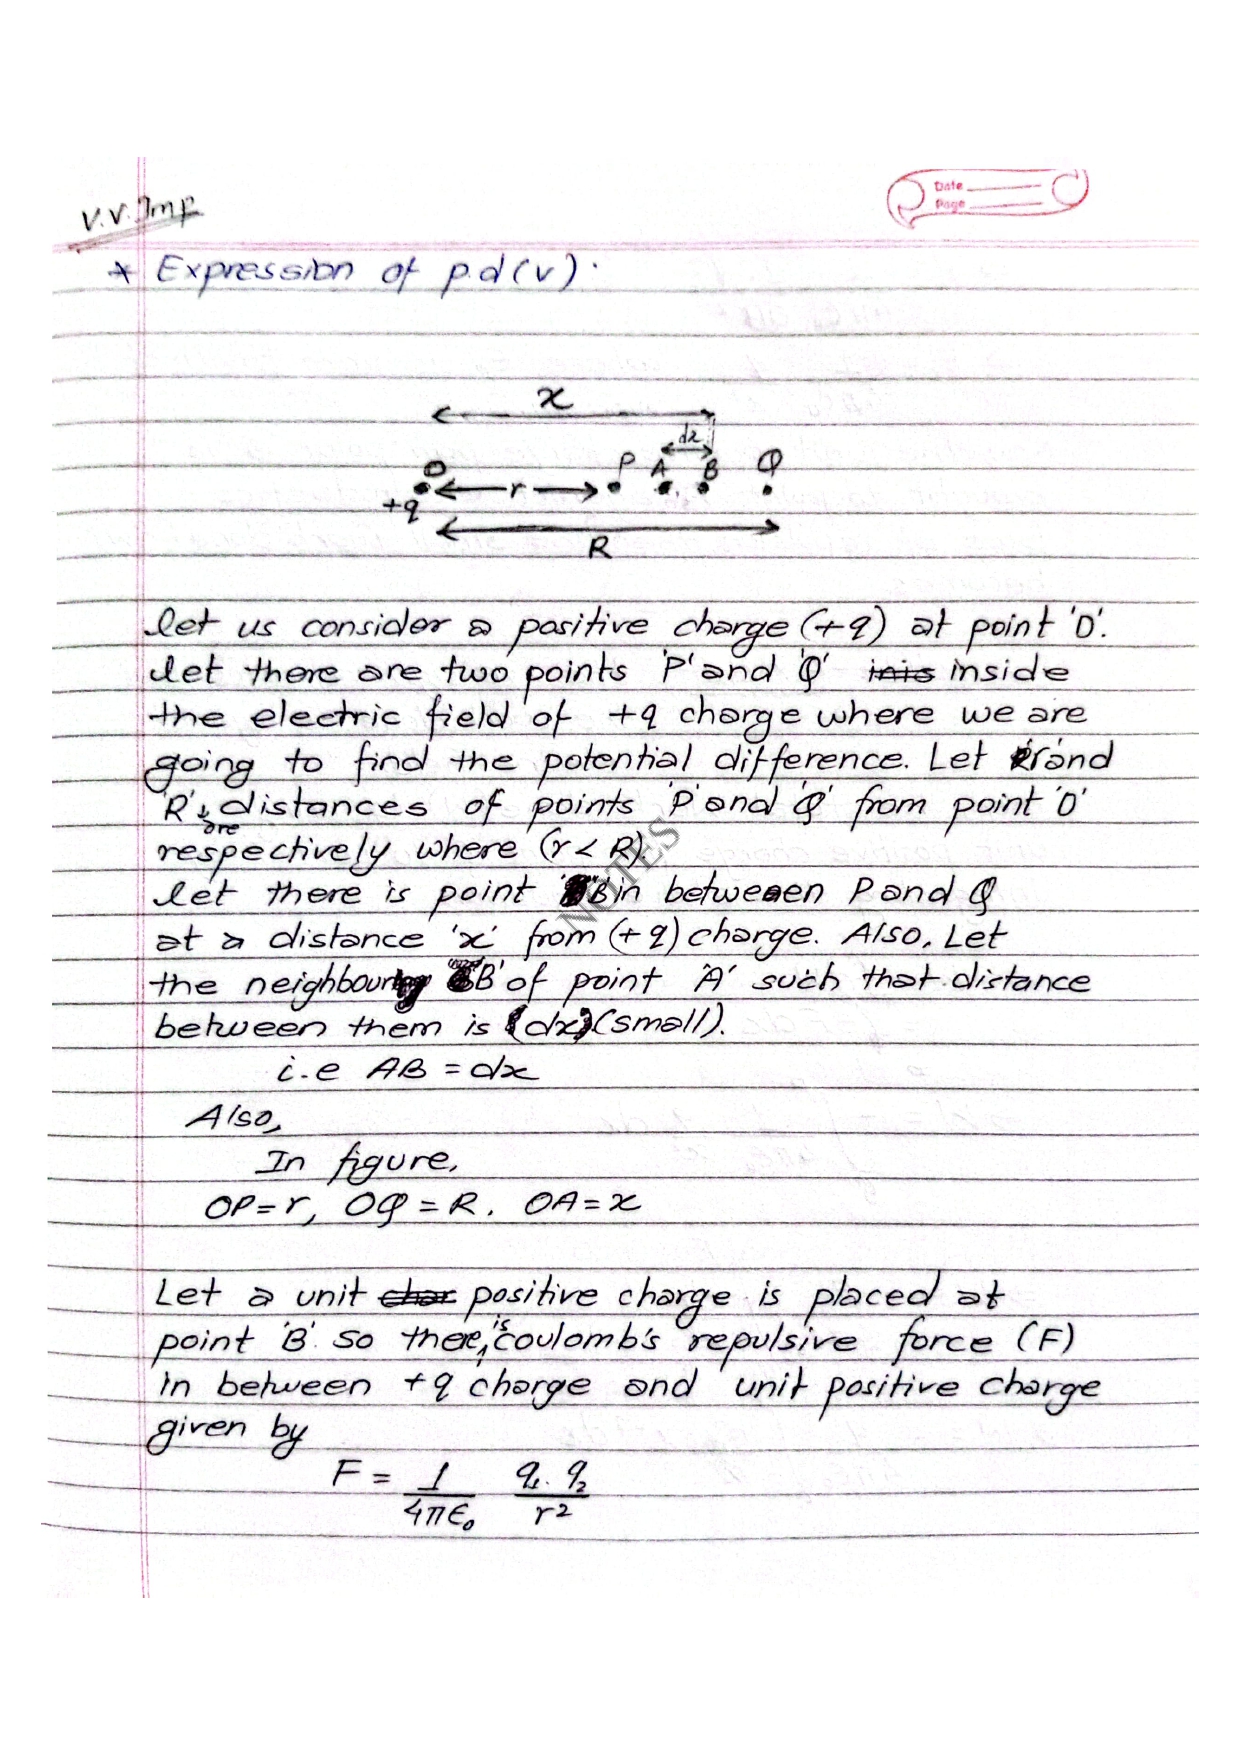 V.V. Imp
Date
Page
* Expression of p.d(v).
x
dx
O P A B Q
+q r
R
Let us consider a positive charge (+q) at point 'O'.
Let there are two points 'P' and 'Q' inis inside
the electric field of +q charge where we are
going to find the potential difference. Let 'r' and
'R' are distances of points 'P' and 'Q' from point 'O'
respectively where (r < R).
Let there is point 'B' in between P and Q
at a distance 'x' from (+q) charge. Also, Let
the neighbouring 'B' of point 'A' such that distance
between them is (dx) (small).
i.e AB = dx
Also,
In figure,
OP = r, OQ = R. OA = x
Let a unit char positive charge is placed at
point 'B' so there is coulomb's repulsive force (F)
in between +q charge and unit positive charge
given by
F = 1/4πϵ₀ q₁. q₂/r²
NOTES